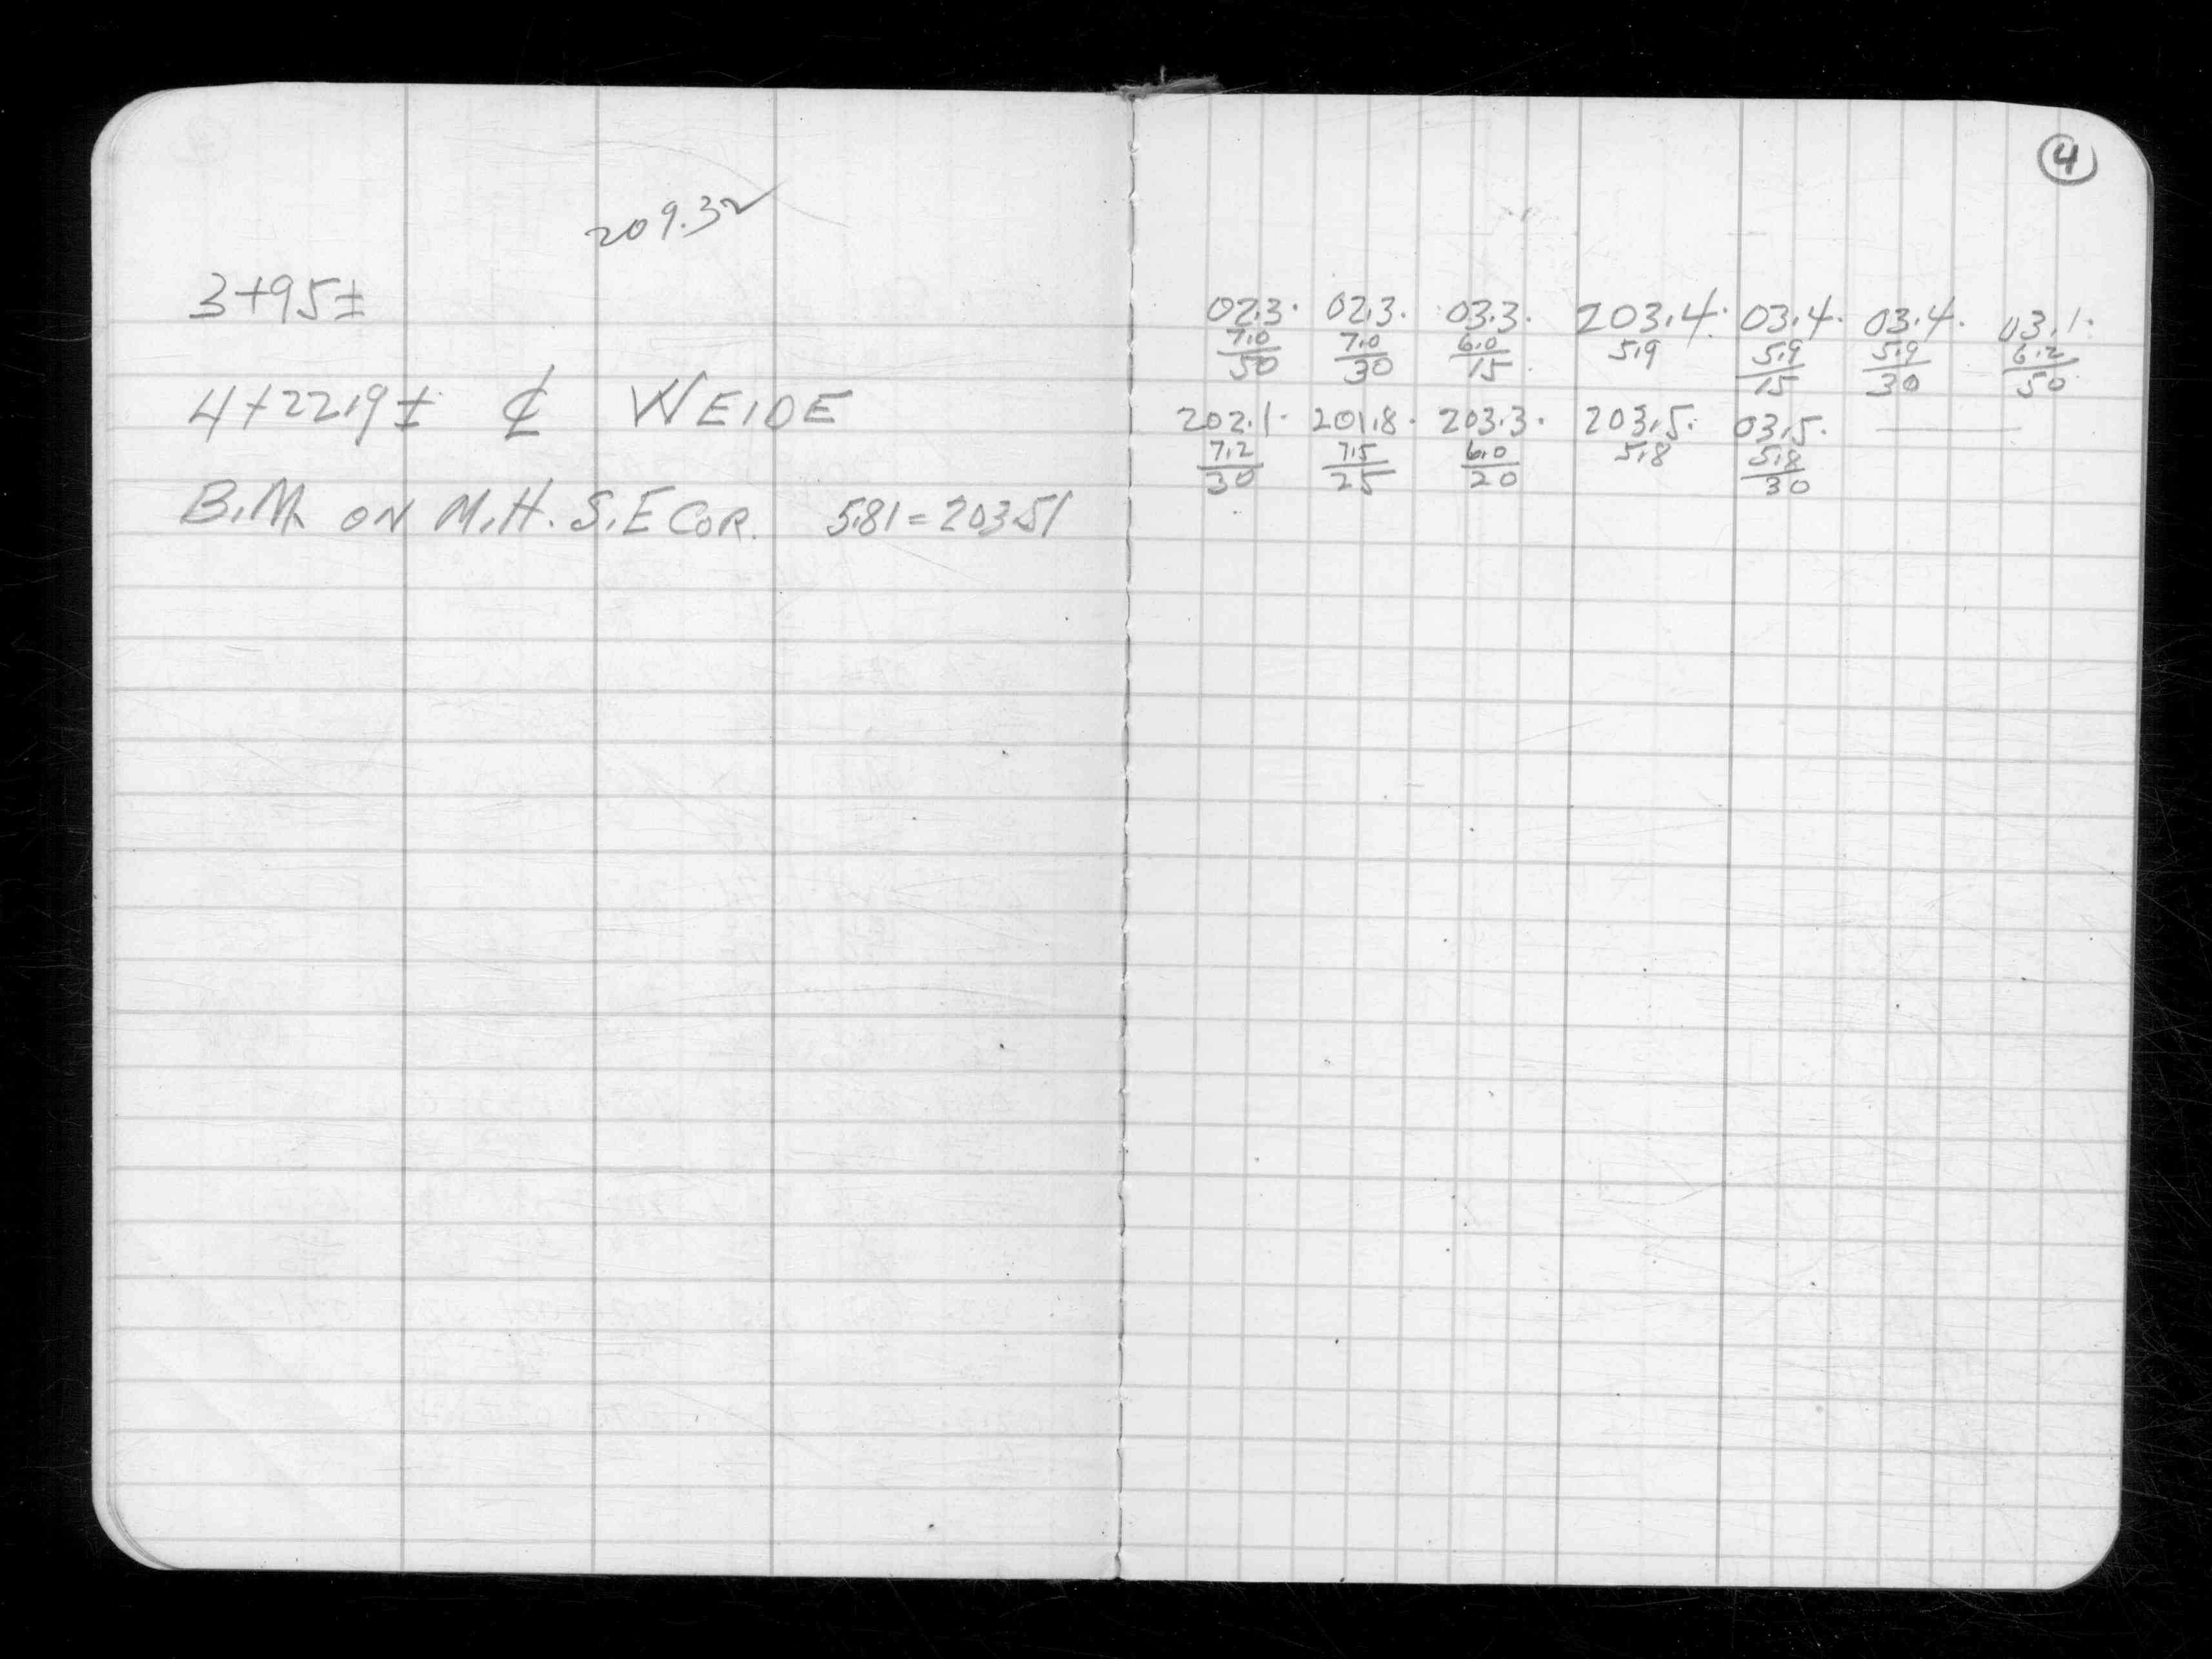 209.32
3+95±
4+22.9± ₵ WEIDE
B.M. ON M.H. S.E COR. 5.81 = 203.51
4
02.3. 02.3. 03.3. 203.4. 03.4. 03.4. 03.1.
7.0 7.0 6.0 5.9 5.9 5.9 6.2
50 30 15 15 30 50
202.1. 201.8. 203.3. 203.5. 03.5. —
7.2 7.5 6.0 5.8 5.8
30 25 20 30